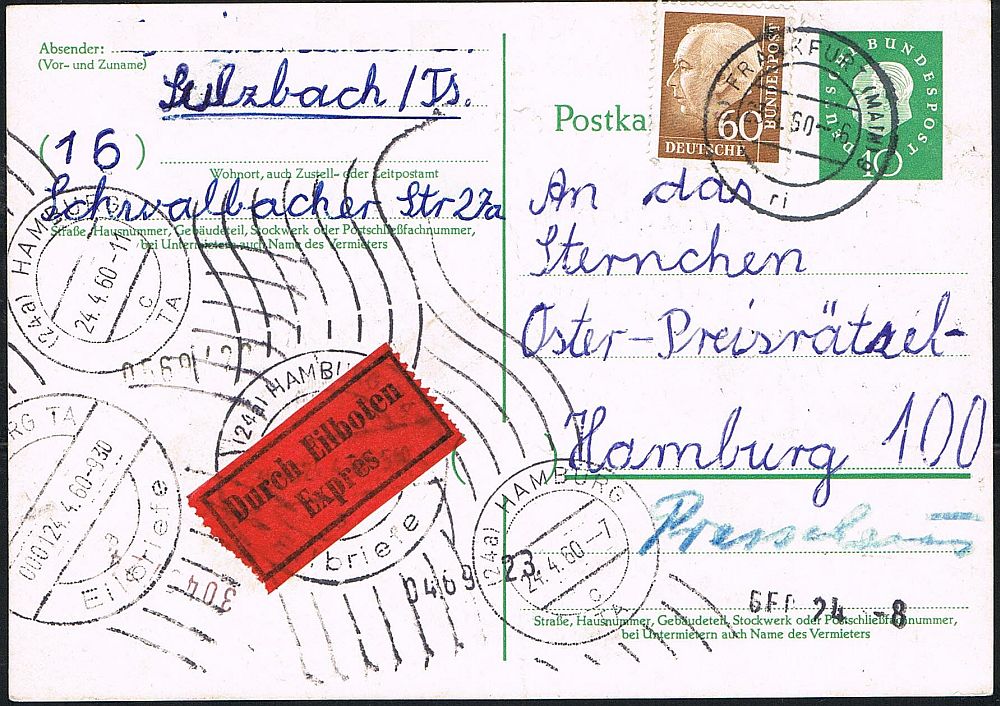 Absender:
(Vor- und Zuname)
Sulzbach / Ts.
(16)
Wohnort, auch Zustell- oder Leitpostamt
Schwalbacher Str 27a
Straße, Hausnummer, Gebäudeteil, Stockwerk oder Postschließfachnummer,
bei Untermietern auch Name des Vermieters
(24a) HAMBURG
24.4.60-11
c
TA
0560
RG TA
000124.4.60-930
a
Eilbriefe
304
(24a) HAMBU
briefe
Durch Eilboten
Exprès
0469
Postka
60
DEUTSCHE
BUNDESPOST
FRANKFURT (MAIN)
.60-16
ri
DEUTSCHE
BUNDESPOST
10
An das
Sternchen
Oster-Preisrätsel-
Hamburg 100
Pressehaus
(24a) HAMBURG
24.4.60-7
c
TA
23
24 -8
Straße, Hausnummer, Gebäudeteil, Stockwerk oder Postschließfachnummer,
bei Untermietern auch Name des Vermieters